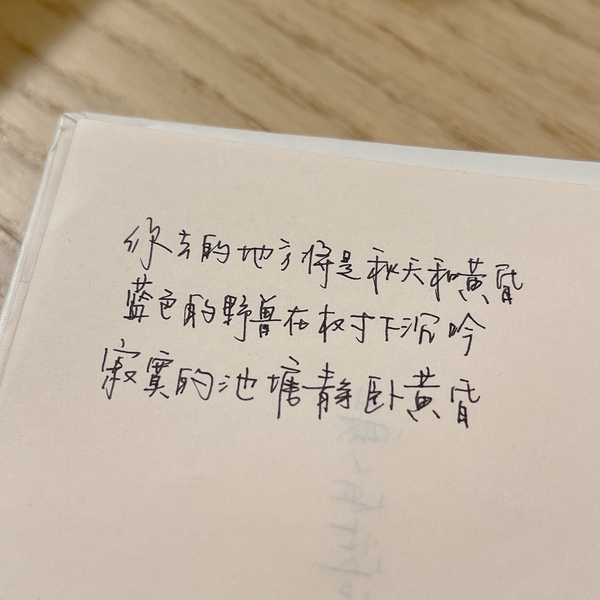 你去的地方将是秋天和黄昏
蓝色的野兽在树下沉吟
寂寞的池塘静卧黄昏